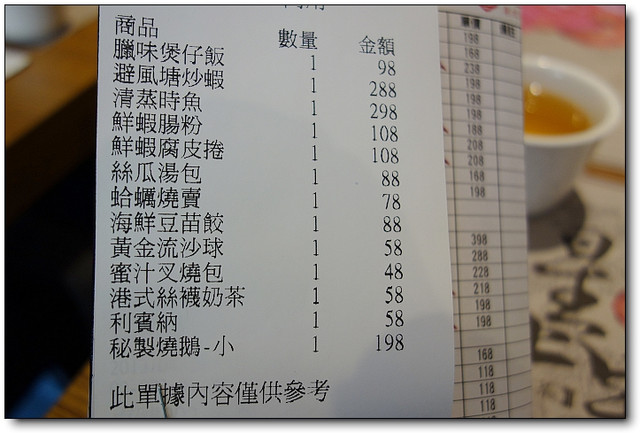 商品 數量 金額
臘味煲仔飯 1 98
避風塘炒蝦 1 288
清蒸時魚 1 298
鮮蝦腸粉 1 108
鮮蝦腐皮捲 1 108
絲瓜湯包 1 88
蛤蠣燒賣 1 78
海鮮豆苗餃 1 88
黃金流沙球 1 58
蜜汁叉燒包 1 48
港式絲襪奶茶 1 58
利賓納 1 58
秘製燒鵝-小 1 198
此單據內容僅供參考
198
168
238
198
198
198
188
208
208
168
198
398
288
228
218
198
198
168
118
118
118